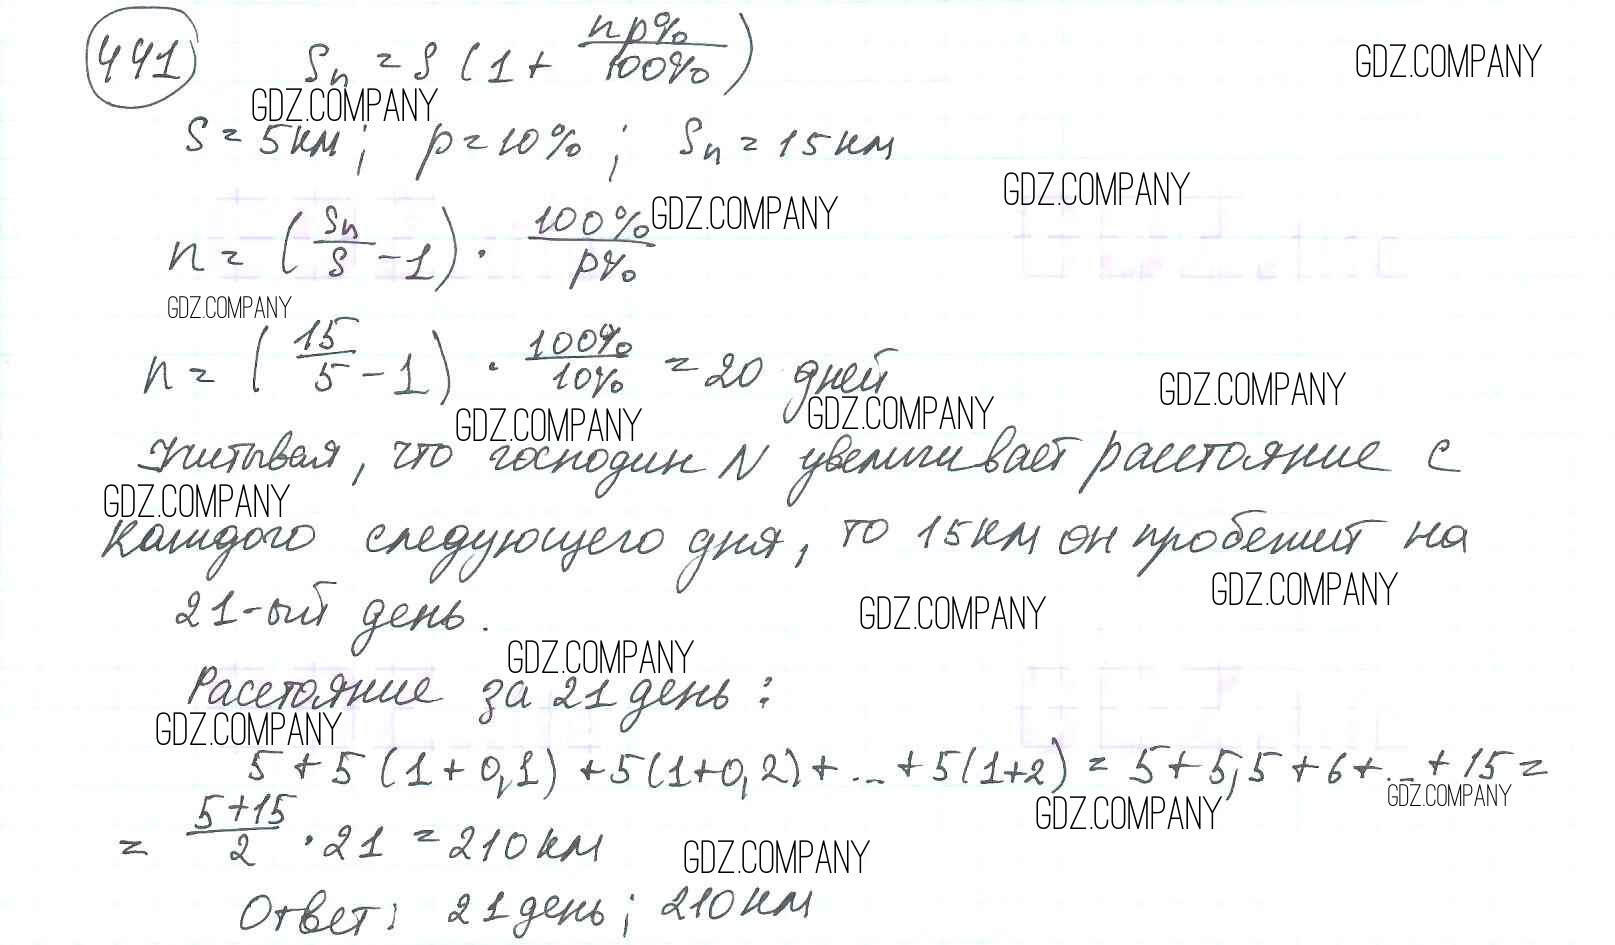 441
Sn = S (1 + np%/100%)
GDZ.COMPANY
GDZ.COMPANY
S = 5км; p = 10%; Sn = 15км
GDZ.COMPANY
n = (Sn/S - 1) · 100%/p%
GDZ.COMPANY
GDZ.COMPANY
n = (15/5 - 1) · 100%/10% = 20 дней
GDZ.COMPANY
GDZ.COMPANY
GDZ.COMPANY
Учитывая, что господин N увеличивает расстояние с
GDZ.COMPANY
каждого следующего дня, то 15км он пробежит на
GDZ.COMPANY
21-ый день.
GDZ.COMPANY
GDZ.COMPANY
Расстояние за 21 день:
GDZ.COMPANY
5 + 5 (1 + 0,1) + 5(1+0,2) + ... + 5(1+2) = 5 + 5,5 + 6 + ... + 15 =
GDZ.COMPANY
GDZ.COMPANY
= (5+15)/2 · 21 = 210 км
GDZ.COMPANY
Ответ: 21 день; 210 км